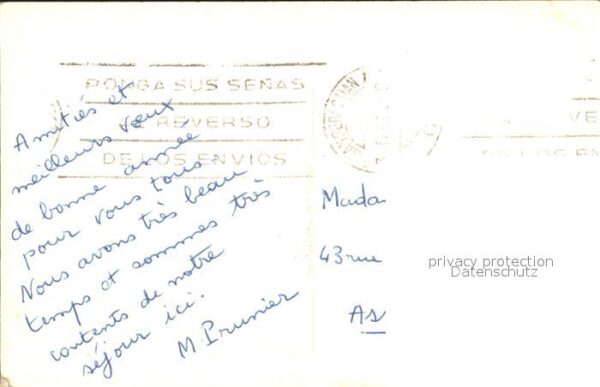 PONGA SUS SEÑAS
REVERSO
DE LOS ENVIOS
Amitiés et
meilleurs vœux
de bonne année
pour vous tous
Nous avons très beau
temps et sommes très
contents de notre
séjour ici.
M. Prunier
Mada
43 rue
As
privacy protection
Datenschutz